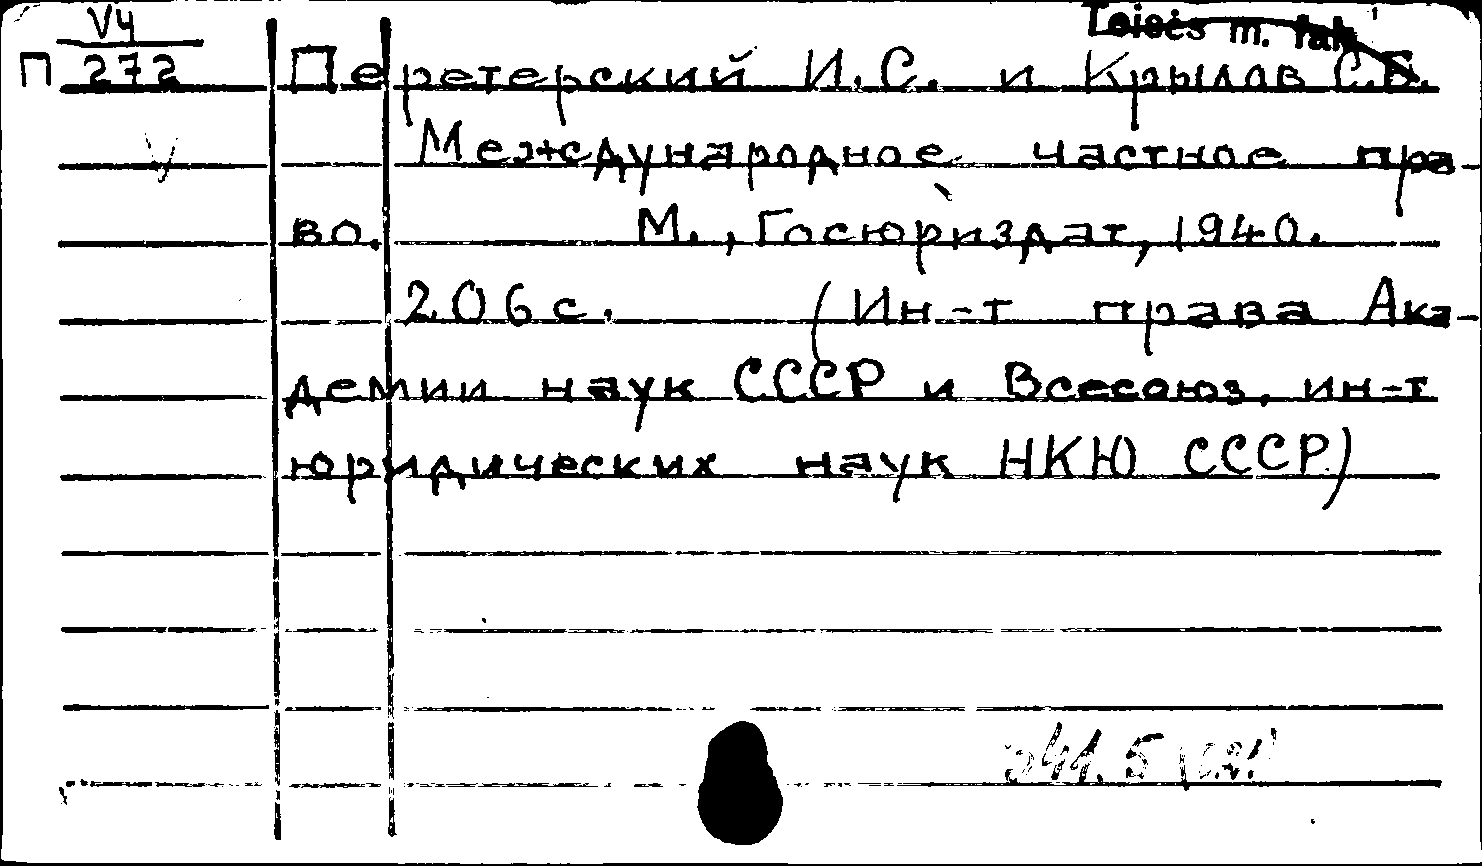 Vч
П 272
Перетерский И.С. и Крылов С.Б.
Международное частное пра-
во. М., Госюриздат, 1940.
206 с. (Ин-т права Ака-
демии наук СССР и Всесоюз. ин-т
юридических наук НКЮ СССР)